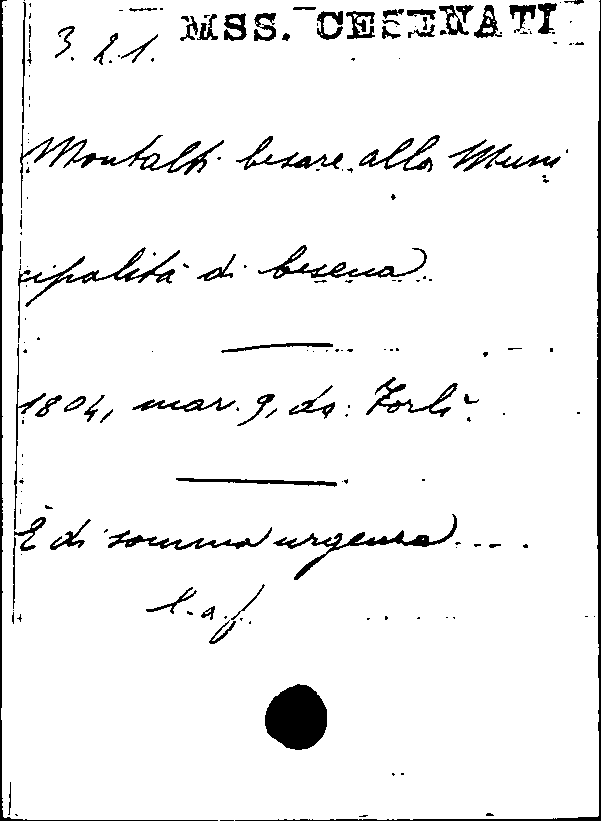 MSS. CESENATI
3.2.1.
Montalti Cesare alla Muni
cipalità di Cesena
1804, mar. 9, da Forlì.
È di somma urgenza ....
l.a.f.